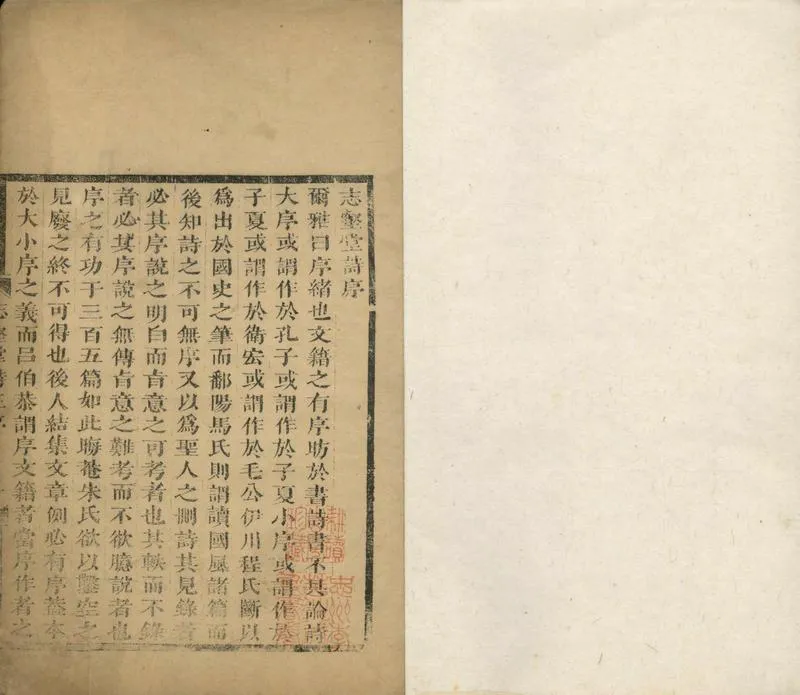 志壑堂詩序
爾雅曰序緒也文籍之有序昉於書詩書不具論詩
大序或謂作於孔子或謂作於子夏小序或謂作於
子夏或謂作於衛宏或謂作於毛公伊川程氏斷以
爲出於國史之筆而鄱陽馬氏則謂讀國風諸篇而
後知詩之不可無序又以爲聖人之刪詩其見錄者
必其序說之明白而肯意之可考者也其軼而不錄
者必其序說之無傳肯意之難考而不欲臆說者也
序之有功于三百五篇如此晦菴朱氏欲以鑿空之
見廢之終不可得也後人結集文章例必有序蓋本
於大小序之義而呂伯恭謂序文籍者當序作者之
志壑堂詩序